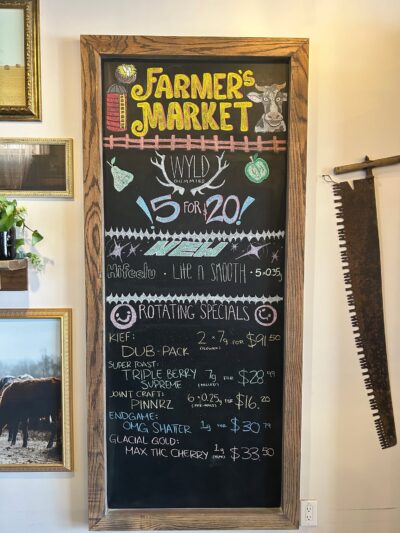 FARMER'S
MARKET
WYLD
GUMMIES
5 FOR $20!
NEW
LITE N SMOOTH • 5 • 0.35g
ROTATING SPECIALS
KIEF: 2 x 7g FOR $91.50
DUB-PACK
SUPER TOAST:
TRIPLE BERRY 7g FOR $28.99
SUPREME (MILLED)
JOINT CRAFT: 6 x 0.25g FOR $16.20
PINNRZ (PRE-ROLLS)
ENDGAME:
OMG SHATTER 1g $30.79
GLACIAL GOLD: 1g
MAX THC CHERRY $33.50